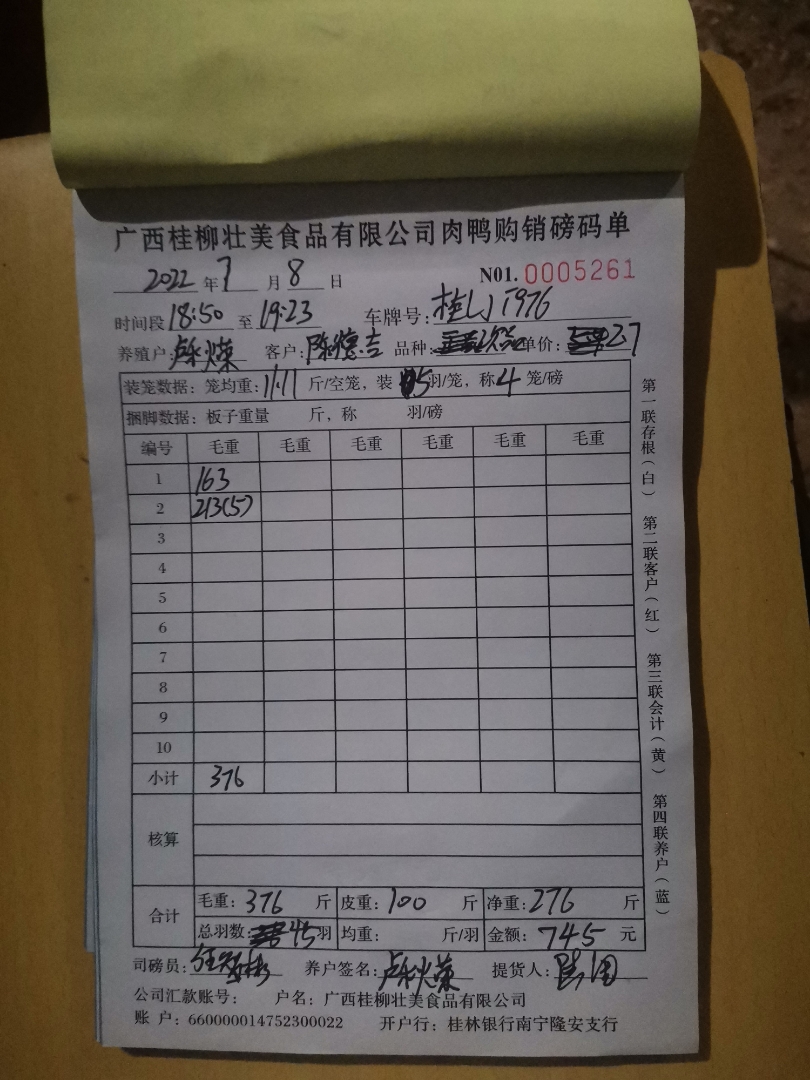 广西桂柳壮美食品有限公司肉鸭购销磅码单
2022年7月8日 N01.0005261
时间段18:50至19:23 车牌号:桂LJT976
养殖户: 客户: 品种:次品 单价:2.7
装笼数据:笼均重:11.11斤/空笼,装5羽/笼,称4笼/磅
捆脚数据:板子重量 斤,称 羽/磅
编号 毛重 毛重 毛重 毛重 毛重 毛重
1 163
2 213(5)
3
4
5
6
7
8
9
10
小计 376
核算
合计 毛重:376斤 皮重:100斤 净重:276斤
总羽数:45羽 均重: 斤/羽 金额:745元
司磅员: 养户签名: 提货人:
公司汇款账号: 户名:广西桂柳壮美食品有限公司
账 户:660000014752300022 开户行:桂林银行南宁隆安支行
第一联存根(白) 第二联客户(红) 第三联会计(黄) 第四联养户(蓝)